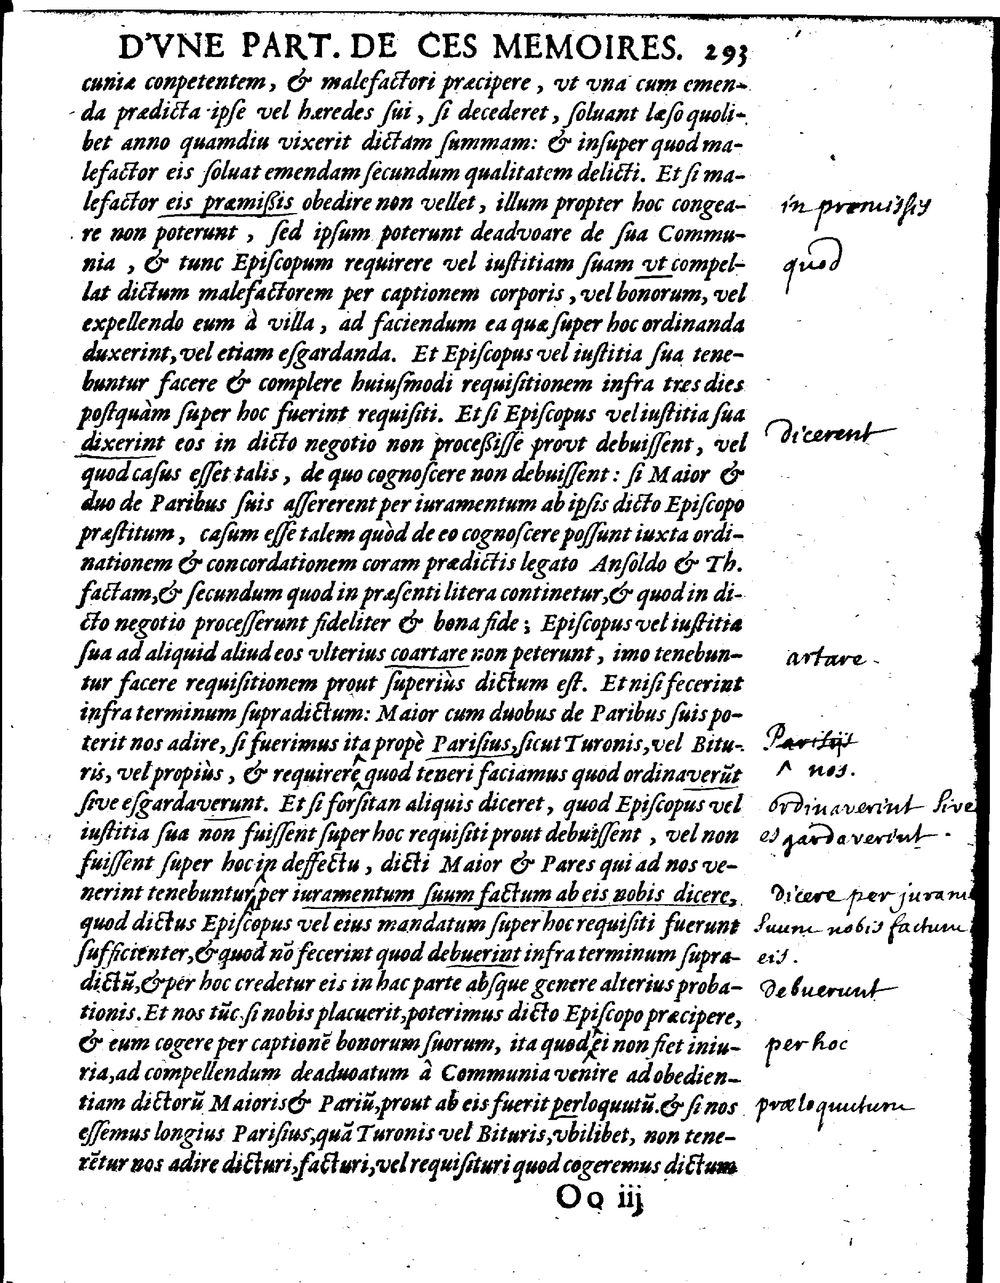 D'VNE PART. DE CES MEMOIRES. 293
cuniæ conpetentem, & malefactori præcipere, vt vna cum emen-
da prædicta ipse vel hæredes sui, si decederet, soluant læso quoli-
bet anno quamdiu vixerit dictam summam: & insuper quod ma-
lefactor eis soluat emendam secundum qualitatem delicti. Et si ma-
lefactor eis præmißis obedire non vellet, illum propter hoc congea-
in premissis
re non poterunt, sed ipsum poterunt deadvoare de sua Commu-
nia, & tunc Episcopum requirere vel iustitiam suam vt compel-
quod
lat dictum malefactorem per captionem corporis, vel bonorum, vel
expellendo eum à villa, ad faciendum ea quæ super hoc ordinanda
duxerint, vel etiam esgardanda. Et Episcopus vel iustitia sua tene-
buntur facere & complere huiusmodi requisitionem infra tres dies
postquàm super hoc fuerint requisiti. Et si Episcopus vel iustitia sua
dixerint eos in dicto negotio non proceßisse provt debuissent, vel
dicerent
quod casus esset talis, de quo cognoscere non debuissent: si Maior &
duo de Paribus suis assererent per iuramentum ab ipsis dicto Episcopo
præstitum, casum esse talem quòd de eo cognoscere possunt iuxta ordi-
nationem & concordationem coram prædictis legato Ansoldo & Th.
factam, & secundum quod in præsenti litera continetur, & quod in di-
cto negotio processerunt fideliter & bona fide; Episcopus vel iustitia
sua ad aliquid aliud eos vlterius coartare non peterunt, imo tenebun-
artare.
tur facere requisitionem prout superiùs dictum est. Et nisi fecerint
infra terminum supradictum: Maior cum duobus de Paribus suis po-
terit nos adire, si fuerimus ita propè Parisius, sicut Turonis, vel Bitu-
Parisijs
ris, vel propiùs, & requirere quod teneri faciamus quod ordinaverũt
^ nos.
sive esgardaverunt. Et si forsitan aliquis diceret, quod Episcopus vel
ordinaverint sive
iustitia sua non fuissent super hoc requisiti prout debuissent, vel non
esgardaverint.
fuissent super hoc in deffectu, dicti Maior & Pares qui ad nos ve-
nerint tenebuntur, per iuramentum suum factum ab eis nobis dicere,
dicere per juram
quod dictus Episcopus vel eius mandatum super hoc requisiti fuerunt
suum nobis factum
sufficienter, & quod nõ fecerint quod debuerint infra terminum supra-
eis.
dictũ, & per hoc credetur eis in hac parte absque genere alterius proba-
debuerunt
tionis. Et nos tũc, si nobis placuerit, poterimus dicto Episcopo præcipere,
& eum cogere per captionẽ bonorum suorum, ita quod ei non fiet iniu-
per hoc
ria, ad compellendum deaduoatum à Communia venire ad obedien-
tiam dictorũ Maioris & Pariũ, prout ab eis fuerit perloquutũ. & si nos
præloquutum
essemus longius Parisius, quã Turonis vel Bituris, vbilibet, non tene-
rẽtur nos adire dicturi, facturi, vel requisituri quod cogeremus dictum
Oo iij